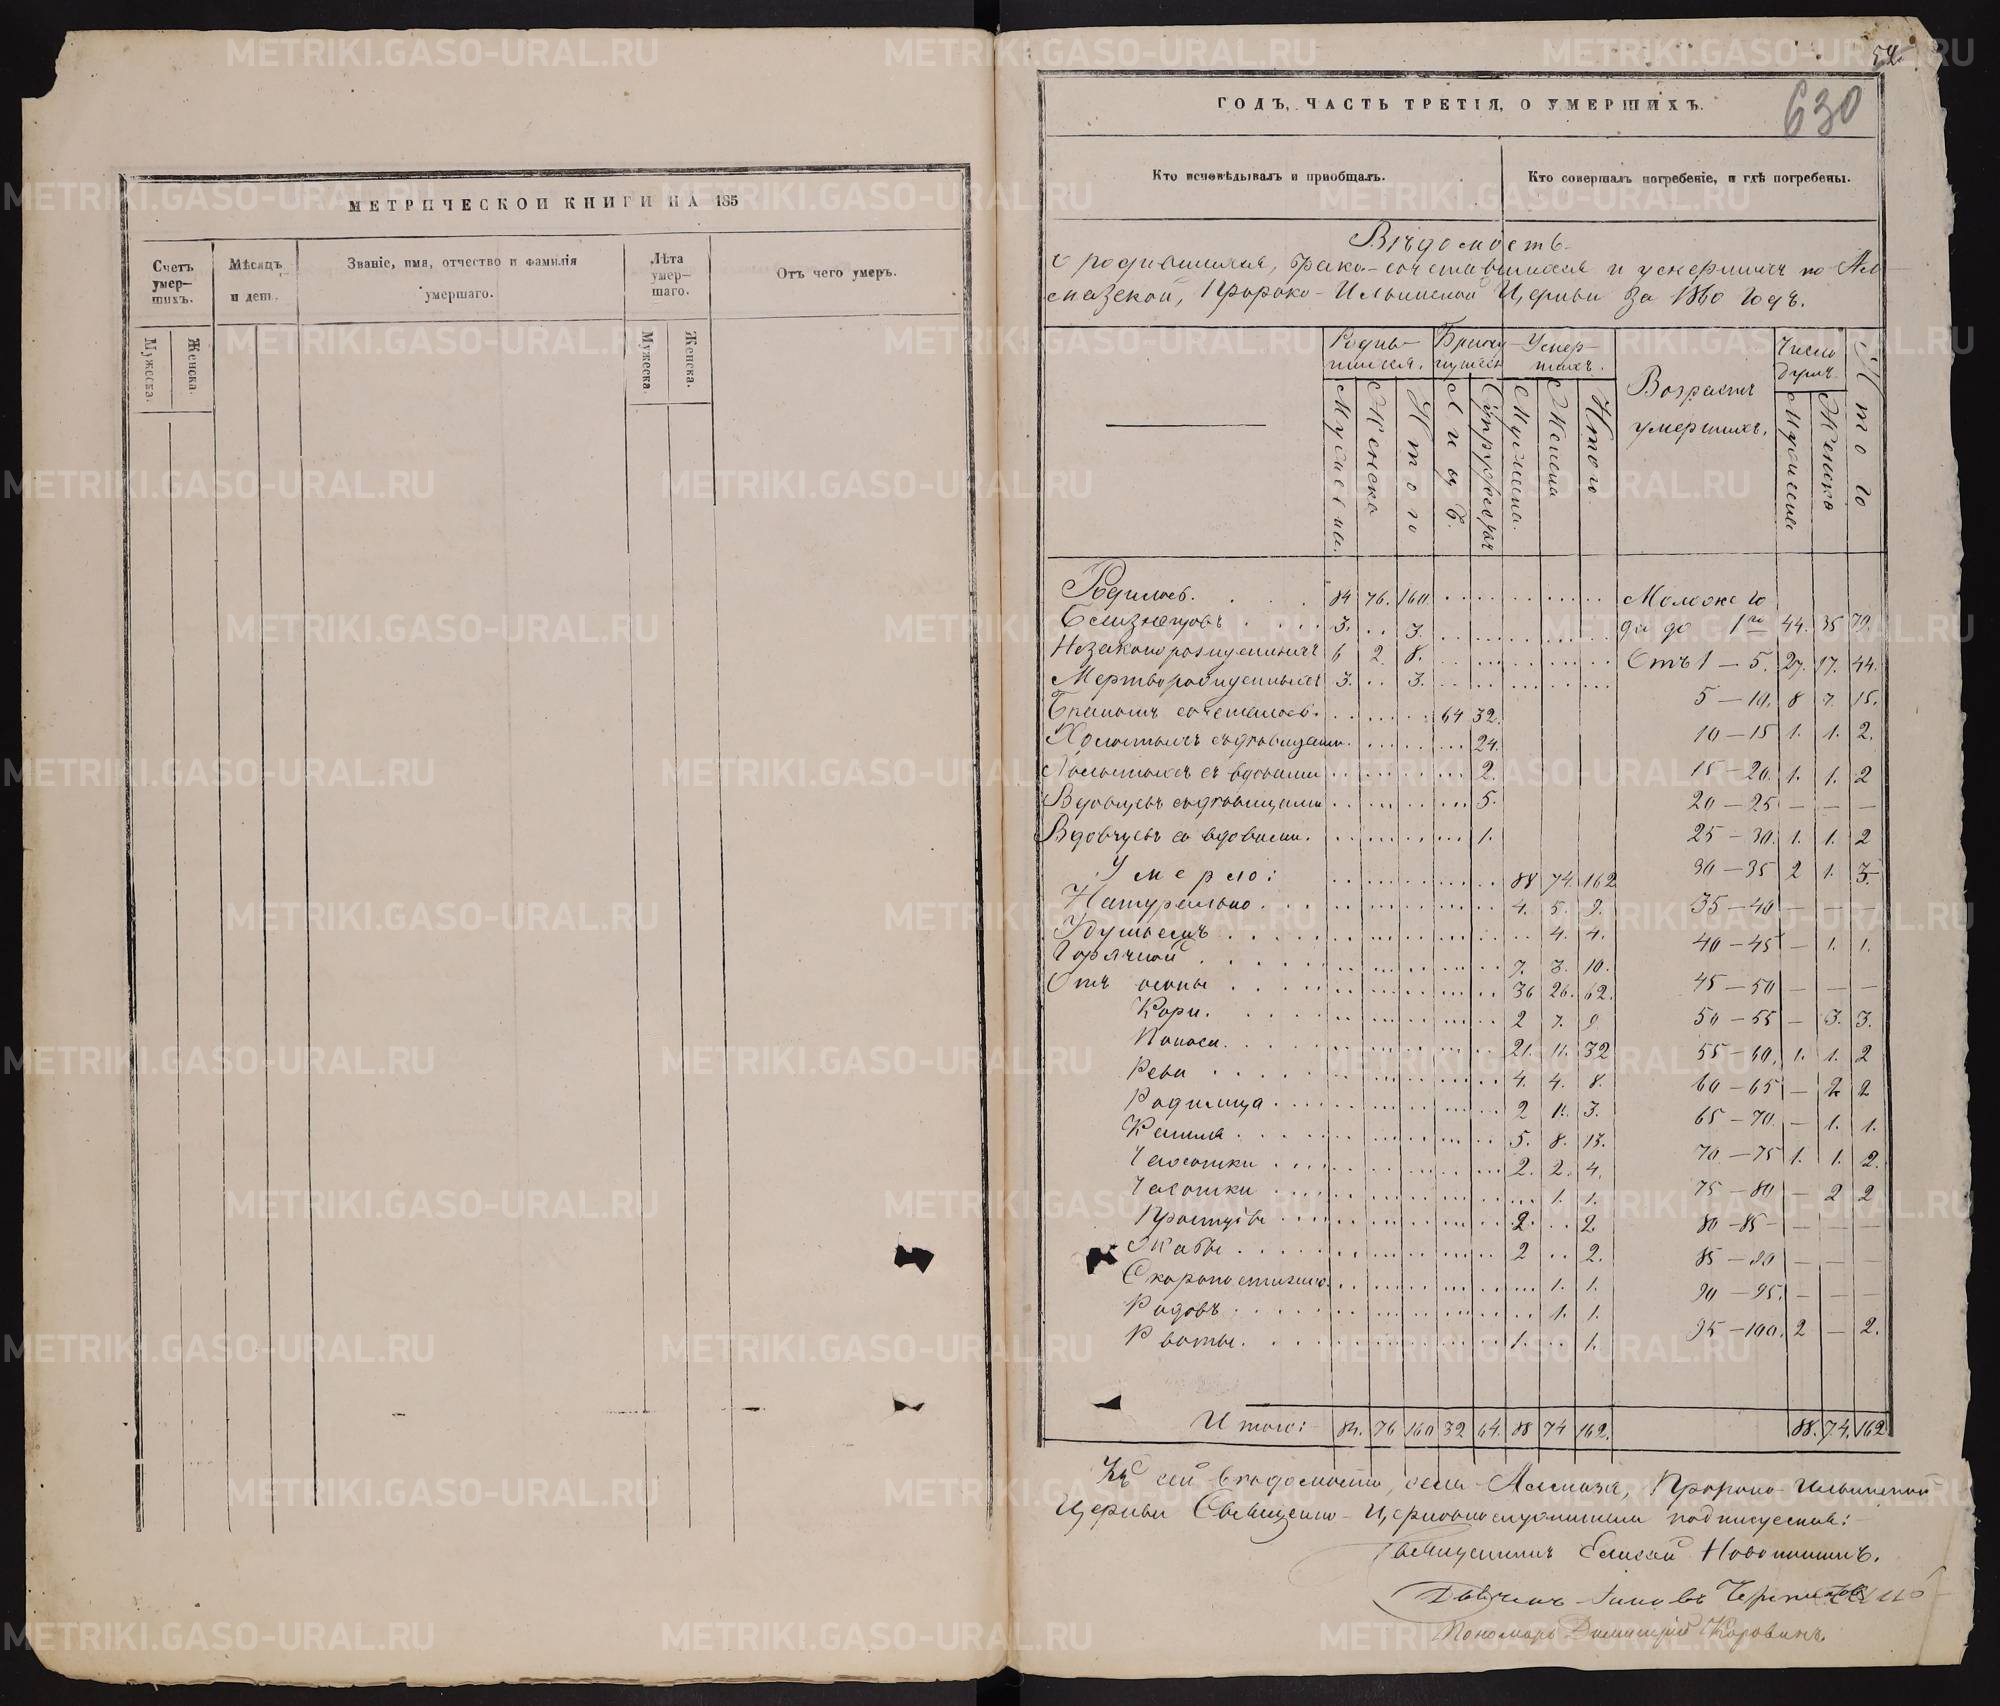 МЕТРИЧЕСКОЙ КНИГИ НА 185
Счетъ умер-шихъ.
Мужеска.
Женска.
Мѣсяцъ и день.
Званіе, имя, отчество и фамилія умершаго.
Лѣта умер-шаго.
Мужеска.
Женска.
Отъ чего умеръ.
630
ГОДЪ, ЧАСТЬ ТРЕТІЯ, О УМЕРШИХЪ.
Кто исповѣдывалъ и пріобщалъ.
Кто совершалъ погребеніе, и гдѣ погребены.
Вѣдомость
о родившихся, брако-сочетавшихся и умершихъ по
Пророко-Ильинской Церкви за 1860 годъ.
Родив-шихся.
Умер-шихъ.
Возрастъ умершихъ.
Число душъ.
Итого
Женска
Итого
Лицъ
Итого
Женска
Родилось. 84. 76. 160.
Моложе го
Близнецовъ 3. .. 3.
да до 1го 44. 35 79.
Незаконорожденныхъ 6 2. 8.
Отъ 1 — 5. 27. 17. 44.
Мертворожденныхъ 3. .. 3.
5 — 10. 8 7. 15.
Бракомъ сочеталось. 64 32.
10 — 15 1. 1. 2.
Холостыхъ съ дѣвицами. 24.
15 — 20. 1. 1. 2
Холостыхъ съ вдовами 2.
20 — 25 — — —
Вдовцевъ съ дѣвицами 5.
25 — 30. 1. 1. 2
Вдовцевъ со вдовами. 1.
30 — 35 2 1. 3.
Умерло: 88 74. 162
35 — 40 — — —
Натурально 4. 5. 9.
40 — 45 — 1. 1.
Удушьемъ .. 4. 4.
Горячкой 7. 3. 10.
45 — 50 — — —
Отъ оспы 36 26. 62.
50 — 55 — 3. 3.
Кори. 2 7. 9
55 — 60. 1. 1. 2
Поноса. 21. 11. 32
60 — 65 — 2 2
Рева 4. 4. 8.
65 — 70. — 1. 1.
Родимца 2 1. 3.
70 — 75 1. 1. 2.
Кашля 5. 8. 13.
75 — 80 — 2 2
Чахотки 2. 2. 4.
80 — 85 — — —
Чесотки 1. 1.
85 — 90 — — —
Простуды 2. .. 2.
90 — 95. — — —
2 .. 2.
95 — 100. 2 — 2.
Скоропостижно. 1. 1.
Родовъ 1. 1.
Рвоты. 1. .. 1.
Итого: 84. 76 160 32 64. 88 74 162. 88. 74. 162
Къ сей вѣдомости, села Пророко-Ильинской
Церкви Священно-Церковнослужители подписуемся:
Священникъ Елисей
Дьячекъ
Пономарь Димитрій Коровинъ.
METRIKI.GASO-URAL.RU